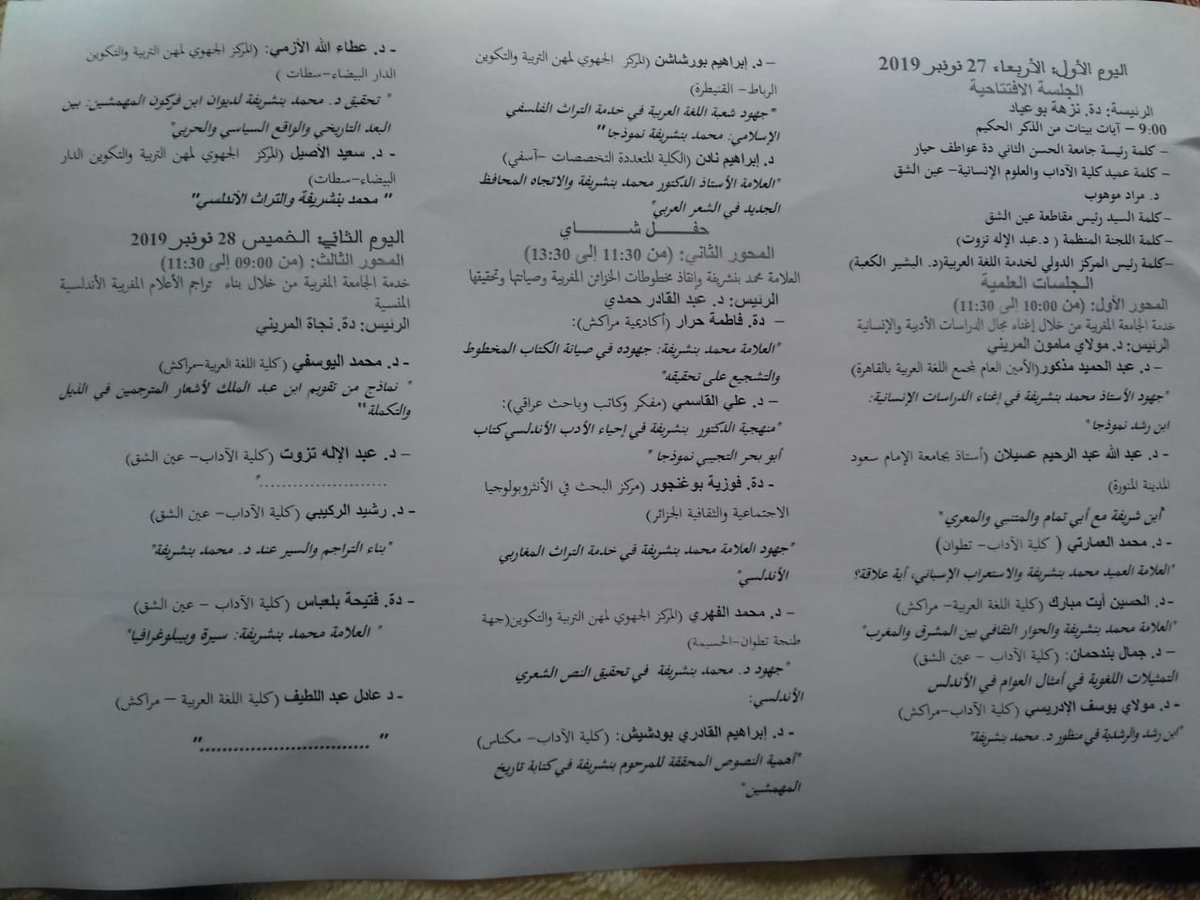 اليوم الأول: الأربعاء 27 نونبر 2019
الجلسة الافتتاحية
الرئيسة: دة. نزهة بوعياد
9:00 – آيات بينات من الذكر الحكيم
– كلمة رئيسة جامعة الحسن الثاني دة عواطف حيار
– كلمة عميد كلية الآداب والعلوم الإنسانية- عين الشق
د. مراد موهوب
–كلمة السيد رئيس مقاطعة عين الشق
–كلمة اللجنة المنظمة ( د.عبد الإله تزوت)
–كلمة رئيس المركز الدولي لخدمة اللغة العربية(د. البشير الكعبة)
الجلسات العلمية
المحور الأول: (من 10:00 إلى 11:30)
خدمة الجامعة المغربية من خلال إغناء مجال الدراسات الأدبية والإنسانية
الرئيس: د. مولاي مامون المريني
– د. عبد الحميد مذكور(الأمين العام لمجمع اللغة العربية بالقاهرة)
"جهود الأستاذ محمد بنشريفة في إغناء الدراسات الإنسانية:
ابن رشد نموذجا"
- د. عبد الله عبد الرحيم عسيلان (أستاذ بجامعة الإمام سعود
المدينة المنورة)
"ابن شريفة مع أبي تمام والمتنبي والمعري"
- د. محمد العمارتي ( كلية الآداب- تطوان)
"العلامة العميد محمد بنشريفة والاستعراب الإسباني، أية علاقة؟
-د. الحسين أيت مبارك (كلية اللغة العربية- مراكش)
"العلامة محمد بنشريفة والحوار الثقافي بين المشرق والمغرب"
– د. جمال بندحمان: (كلية الآداب - عين الشق)
التمثيلات اللغوية في أمثال العوام في الأندلس
- د. مولاي يوسف الإدريسي (كلية الآداب-مراكش)
"ابن رشد والرشدية في منظور د. محمد بنشريفة"
– د. إبراهيم بورشاشن (المركز الجهوي لمهن التربية والتكوين
الرباط- القنيطرة)
"جهود شعبة اللغة العربية في خدمة التراث الفلسفي
الإسلامي: محمد بنشريفة نموذجا"
د. إبراهيم نادن (الكلية المتعددة التخصصات -آسفي)
"العلامة الأستاذ الدكتور محمد بنشريفة والاتجاه المحافظ
الجديد في الشعر العربي"
حفل شاي
المحور الثاني: (من 11:30 إلى 13:30)
العلامة محمد بنشريفة وإنقاذ مخطوطات الخزائن المغربية وصيانتها وتحقيقها
الرئيس: د. عبد القادر حمدي
– دة. فاطمة حرار (أكاديمية مراكش):
"العلامة محمد بنشريفة: جهوده في صيانة الكتاب المخطوط
والتشجيع على تحقيقه"
– د. علي القاسمي (مفكر وكاتب وباحث عراقي):
"منهجية الدكتور بنشريفة في إحياء الأدب الأندلسي كتاب
أبو بحر التجيبي نموذجا "
- دة. فوزية بوغنجور (مركز البحث في الأنثروبولوجيا
الاجتماعية والثقافية الجزائر)
"جهود العلامة محمد بنشريفة في خدمة التراث المغاربي
الأندلسي"
– د. محمد الفهري (المركز الجهوي لمهن التربية والتكوين(جهة
طنجة تطوان-الحسيمة)
"جهود د. محمد بنشريفة في تحقيق النص الشعري
الأندلسي:
- د. إبراهيم القادري بودشيش: (كلية الآداب- مكناس)
"أهمية النصوص المحققة للمرحوم بنشريفة في كتابة تاريخ
المهمشين"
- د. عطاء الله الأزمي: (المركز الجهوي لمهن التربية والتكوين
الدار البيضاء-سطات )
" تحقيق د. محمد بنشريفة لديوان ابن فركون المهمشين: بين
البعد التاريخي والواقع السياسي والحربي"
- د. سعيد الأصيل (المركز الجهوي لمهن التربية والتكوين الدار
البيضاء-سطات)
" محمد بنشريفة والتراث الأندلسي"
اليوم الثاني: الخميس 28 نونبر 2019
المحور الثالث: (من 09:00 إلى 11:30)
خدمة الجامعة المغربية من خلال بناء تراجم الأعلام المغربية الأندلسية
المنسية
الرئيس: دة. نجاة المريني
- د. محمد اليوسفي (كلية اللغة العربية-مراكش)
" نماذج من تقويم ابن عبد الملك لأشعار المترجمين في الذيل
والتكملة"
– د. عبد الإله تزوت (كلية الآداب- عين الشق)
......................"
- د. رشيد الركيبي (كلية الآداب- عين الشق)
"بناء التراجم والسير عند د. محمد بنشريفة"
- دة. فتيحة بلعباس (كلية الآداب - عين الشق)
" العلامة محمد بنشريفة: سيرة وبيبلوغرافيا"
- د. عادل عبد اللطيف (كلية اللغة العربية - مراكش)
" .............................."